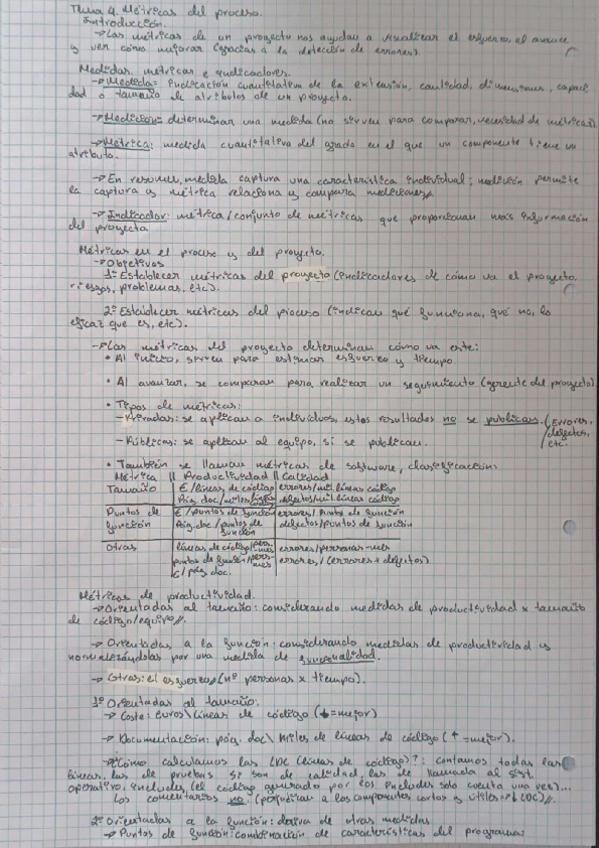 Tema 4. Métricas del proceso.
Introducción.
→ Las métricas de un proyecto nos ayudan a visualizar el esfuerzo, el avance
y ver cómo mejorar (gracias a la detección de errores).
Medidas, métricas e indicadores.
→ Medida: indicación cuantitativa de la extensión, cantidad, dimensiones, capaci
dad o tamaño de atributos de un proyecto.
→ Medición: determinar una medida (no sirven para comparar, necesidad de métricas).
→ Métrica: medida cuantitativa del grado en el que un componente tiene un
atributo.
→ En resumen, medida captura una característica individual; medición permite
la captura y métrica relaciona y compara mediciones//
→ Indicador: métrica/conjunto de métricas que proporcionan más información
del proyecto
Métricas en el proceso y del proyecto.
→ Objetivos
1º Establecer métricas del proyecto (indicadores de cómo va el proyecto,
riesgos, problemas, etc).
2º Establecer métricas del proceso (indican qué funciona, qué no, lo
eficaz que es, etc).
→ Las métricas del proyecto determinan cómo va este:
• Al inicio, sirven para estimar esfuerzo y tiempo
• Al avanzar, se comparan para realizar un seguimiento (gerente del proyecto)
• Tipos de métricas:
- Privadas: se aplican a individuos, estos resultados no se publican. (Errores,
defectos,
etc.
- Públicas: se aplican al equipo, sí se publican.
• También se llaman métricas de software, clasificación:
Métrica || Productividad || Calidad
Tamaño | €/líneas de código | errores/mil líneas código
Pág. doc/miles líneas código | defectos/mil líneas código
Puntos de | €/puntos de función | errores/Puntos de función
función | Pág. doc/puntos de | defectos/puntos de función
función
Otras | líneas de código/pers-mes | errores/personas-mes
puntos de función/pers-mes | errores/(errores + defectos)
€/pág. doc.
Métricas de productividad.
→ Orientadas al tamaño: considerando medidas de productividad x tamaño
de código/equipo//.
→ Orientadas a la función: considerando medidas de productividad y
normalizándolas por una medida de funcionalidad.
→ Otras: el esfuerzo (nº personas x tiempo).
1º Orientadas al tamaño.
→ Coste: Euros\Líneas de código (↓=mejor)
→ Documentación: pág. doc\Miles de líneas de código (↑=mejor).
→ ¿Cómo calculamos las LDC (líneas de código)?: contamos todas las
líneas, las de pruebas si son de calidad, las de llamada al sist.
operativo, includes (el código generado por los includes solo cuenta una vez)...
Los comentarios no. (perjudican a los componentes cortos y útiles → ↓LDC)//.
2º Orientadas a la función: deriva de otras medidas
→ Puntos de función: combinación de características del programa: